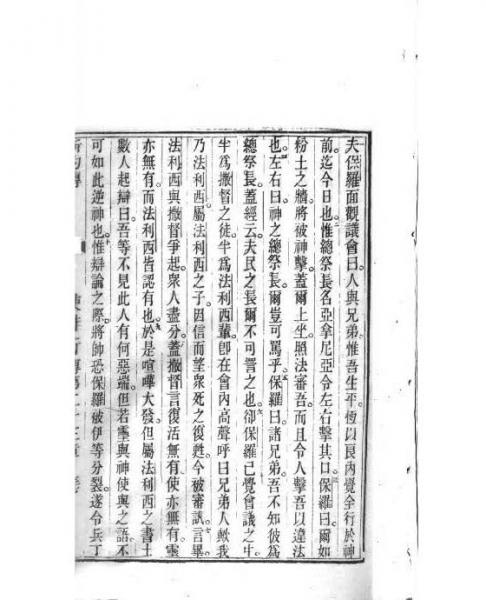 夫保羅面觀議會曰。人與兄弟惟吾生平恆以良內覺全行於神
前。迄今日也。惟總祭長名亞拿尼亞令左右擊其口。保羅曰。爾如
粉土之牆。將被神擊。蓋爾上坐照法審吾。而且令人擊吾以違法
也。左右曰。神之總祭長。爾豈可罵乎。保羅曰。諸兄弟。吾不知彼爲
總祭長。蓋經云。夫民之長爾不可詈之也。卻保羅已覺會議之中。
半爲撒督之徒。半爲法利西輩。卽在會內高聲呼曰。兄弟人歟。我
乃法利西屬法利西之子。因信而望衆死之復甦。今被審訊。言畢
法利西與撒督爭起。衆人盡分。蓋撒督言復活無有。使亦無有。靈
亦無有。而法利西皆認有也。於是喧嘩大發。但屬法利西之書士
數人起辯曰。吾等不見此人有何惡端。但若靈與神使與之語。不
可如此逆神也。惟辯論之際。將帥恐保羅被伊等分裂。遂令兵丁